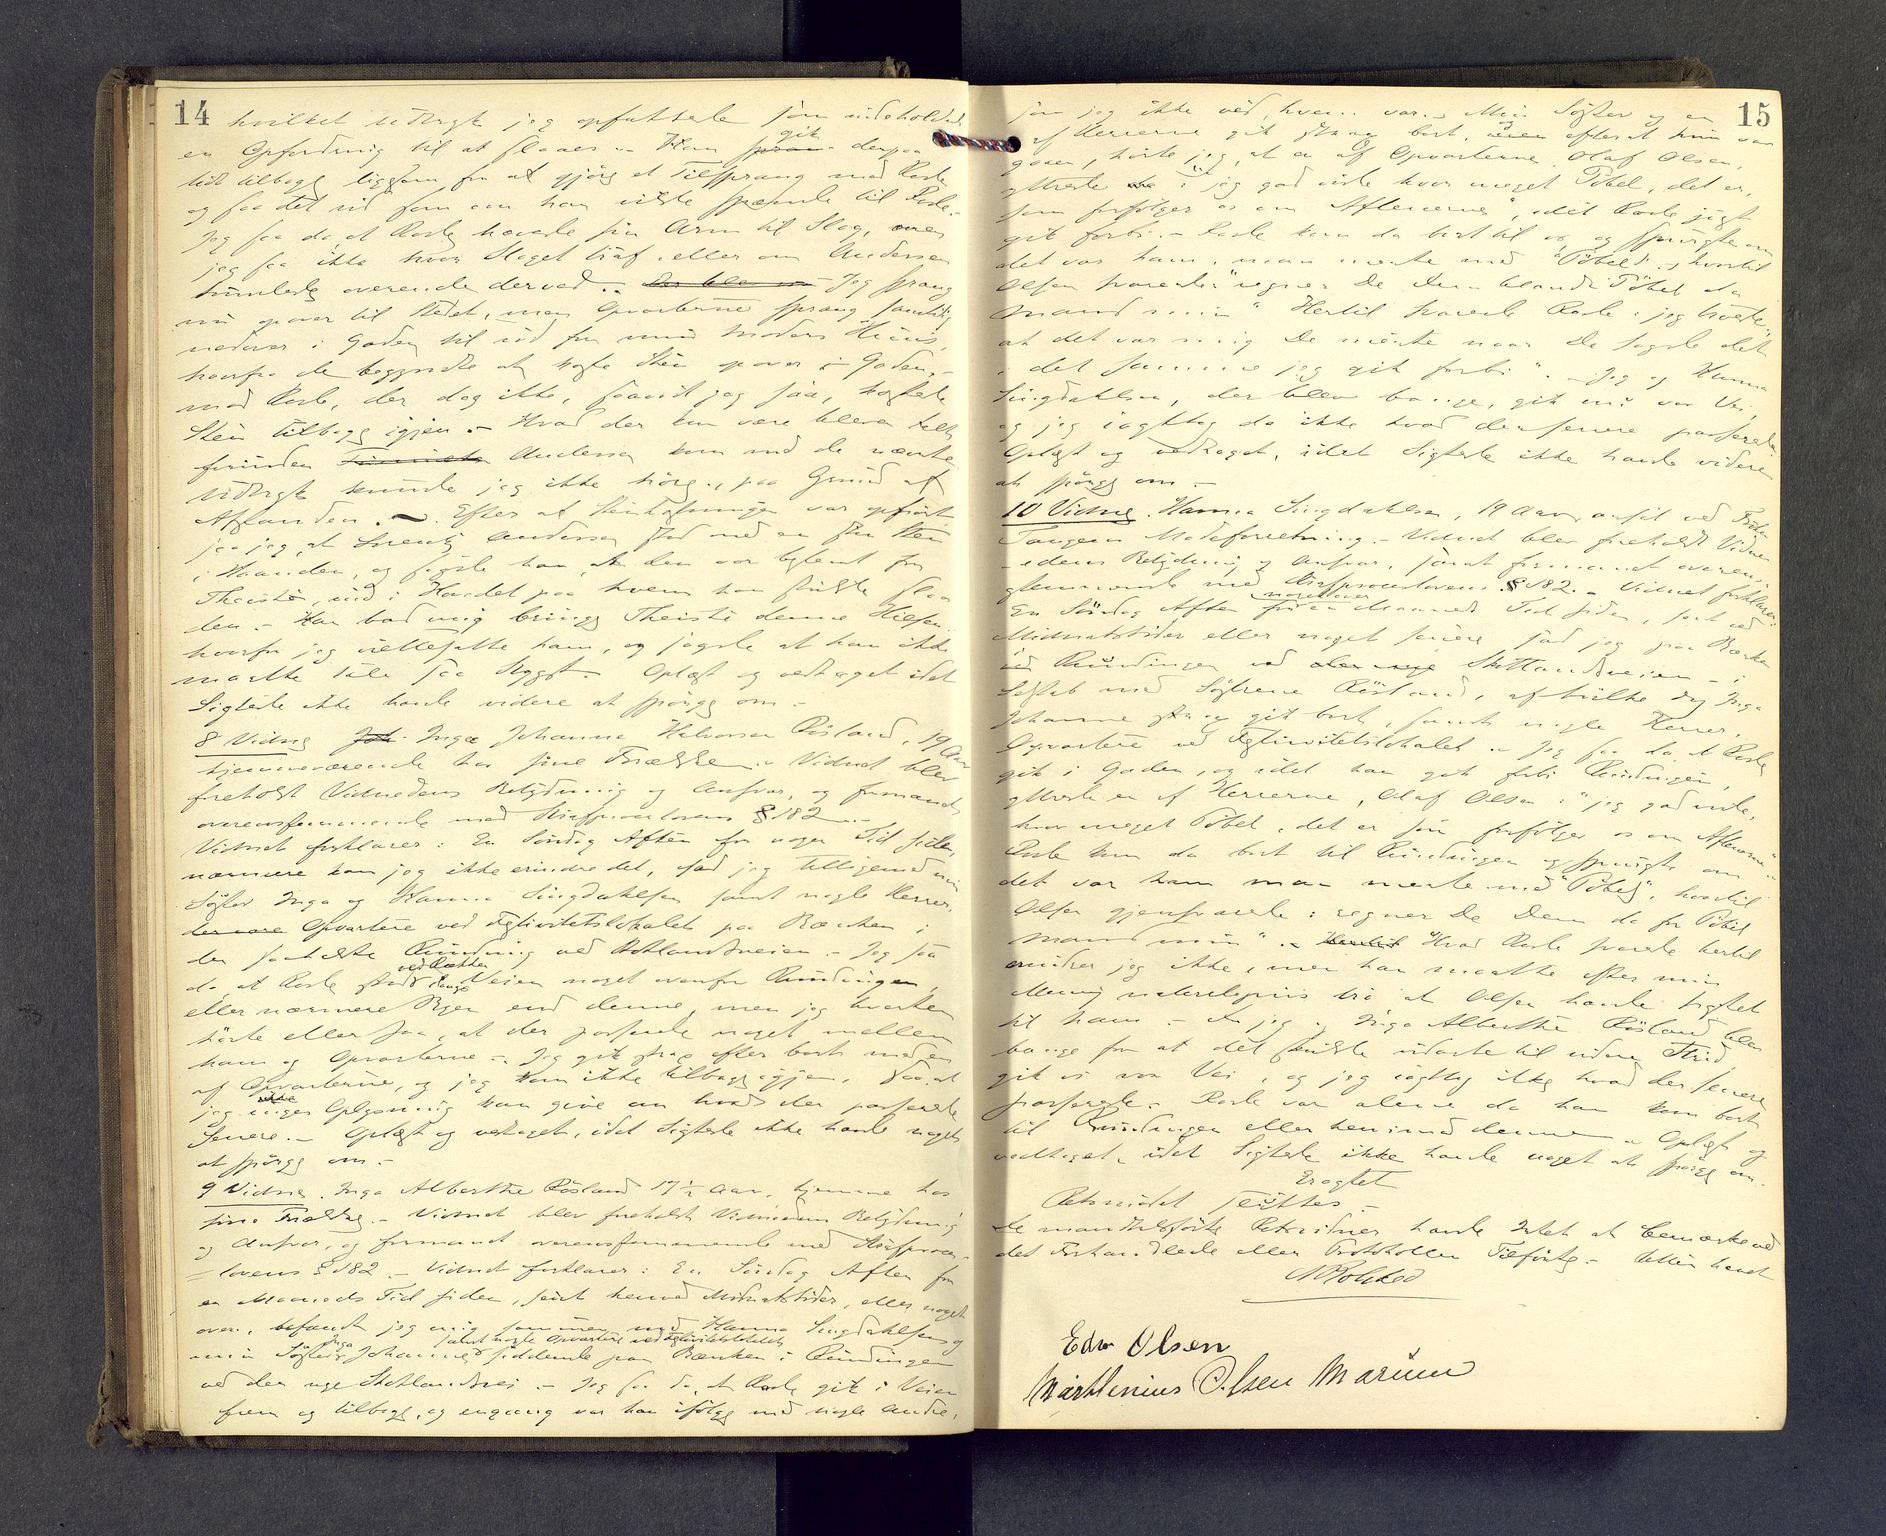 14
hvilket Udtryk jeg opfattede som indeholdende
en Opfordring til at slaaes. - Han gik derpaa
lidt tilbage ligesom for at gjøre et Tilsprang mod Rosle
og saa det ud som om han vilde spænde til Rosle.
Jeg saa da at Rosle hævede sin Arm til Slag, men
jeg saa ikke hvor Slaget traf eller om Andersen
tumlede overende derved. - Jeg sprang
nu opover til Stedet, men Opvarterne sprang samtidig
nedover i Gaden til ud for min Moders Huus,
hvorfra de begyndte at kaste Sten opover i Gaden
mod Rosle, der dog ikke, saavidt jeg saa, kastede
Sten tilbage igjen. - Hvad der kan være bleven talt
forinden Andersen kom med de nævnte
Udtryk kunde jeg ikke høre, paa Grund af
Afstanden. - Efter at Stenkastningen var ophørt
saa jeg, at Lorentz Andersen stod med en stor Sten
i Haanden, og sagde han, at den var bestemt for
Theiste, ud i Hovedet paa hvem han skulde slaa
den. - Han bad mig bringe Theiste denne Hilsen
hvorfor jeg irettesatte ham, og sagde at han ikke
maatte tale saa stygt. - Oplæst og vedtaget idet
Sigtede ikke havde videre at spørge om. -
8 Vidne Inga Johanne Halvorsen Røsland, 19 Aar
hjemmeværende hos sine Forældre. - Vidnet blev
foreholdt Vidnedens Betydning og Ansvar, og formanet
overensstemmende med Strafproceslovens § 182. -
Vidnet forklarer: En Søndag Aften for nogen Tid siden,
nærmere kan jeg ikke erindre det, sad jeg tilligemed min
Søster Inga og Hanna Lingdahlsen samt nogle Herrer,
Opvartere ved Festivitetslokalet paa Bænken i
den saakaldte Runding ved Skotlandsveien. - Jeg saa
da at Rosle stod ved Rækken langs Veien noget ovenfor Rundingen,
eller nærmere Byen end denne, men jeg hverken
hørte eller saa, at der passerede noget mellem
ham og Opvarterne. - Jeg gik strax efter bort med en
af Opvarterne, og jeg kom ikke tilbage igjen, saa at
jeg ikke Oplysning kan give om hvad der passerede
senere. - Oplæst og vedtaget, idet Sigtede ikke havde noget
at spørge om. -
9 Vidne. Inga Alberthe Røsland 17½ Aar, hjemme hos
sine Forældre. - Vidnet blev foreholdt Vidnedens Betydning
og Ansvar, og formanet overensstemmende med Strafproces-
lovens § 182. - Vidnet forklarer: En Søndag Aften for
en Maaneds Tid siden, sent henved Midnatstider, eller noget
over, befandt jeg mig sammen med Hanna Lingdahlsen og
min Søster Inga Johanne samt nogle Opvartere ved Festivitetslokalet siddende paa Bænken i Rundingen
ved den nye Skotlandsvei. - Jeg saa da, at Rosle gik i Veien
frem og tilbage, og engang var han ifølge med nogle Andre,
15
som jeg ikke ved, hvem var. - Min Søster og en
af Herrerne gik strax bort, efterat hun var
gaaen, hørte jeg, at en af Opvarterne Olaf Olsen,
yttrede : "jeg gad vide hvor meget Pøbel, det er,
som forfølger os om Aftenerne", idet Rosle just
gik forbi. - Rosle kom da bort til os og spurgte om
det var ham, man mente med "Pøbel", hvortil
Olsen svarede: "regner De Dem blandt Pøbel da
Mand min" Hertil svarede Rosle: jeg hørte,
at det var mig De mente naar De sagde det
i det samme jeg gik forbi". - Jeg og Hanna
Lingdahlsen, der blev bange, gik nu vor Vei,
og jeg iagttog da ikke hvad der senere passerede.
Oplæst og vedtaget, idet Sigtede ikke havde videre
at spørge om. -
10 Vidne. Hanna Lingdahlsen, 19 Aar, ansat ved Frøken
Tangens Modeforretning. - Vidnet blev foreholdt Vidne-
-edens Betydning og Ansvar, samt formanet overens-
stemmende med Strafproceslovens § 182. - Vidnet forklarer:
En Søndag Aften for en Maaneds Tid siden, sent ved
Midnatstider eller noget senere sad jeg paa Bænken
ved Rundingen ved Skotlandsveien - i
Selskab med Søstrene Røsland, af hvilke dog Inga
Johanne strax gik bort, samt nogle Herrer,
Opvartere ved Festivitetslokalet. - Jeg saa da at Rosle
gik i Gaden, og idet han gik forbi Rundingen,
yttrede en af Herrerne, Olaf Olsen: "jeg gad vide,
hvor meget Pøbel, det er som forfølger os om Aftenerne"
Rosle kom da bort til Rundingen og spurgte om
det var ham man mente med "Pøbel", hvortil
Olsen gjensvarede: regner De Dem da for Pøbel
Mand min". - Hvad Rosle svarede hertil
erindrer jeg ikke, men han maatte efter min
Mening naturligvis tro at Olsen havde sigtet
til ham. - Da jeg og Inga Alberthe Røsland blev
bange for at det skulde udarte til videre Strid
gik vi vor Vei, og jeg iagttog ikke hvad der senere
passerede. - Rosle var alene da han kom bort
til Rundingen eller hen imod denne. - Oplæst og
vedtaget, idet Sigtede ikke havde noget at spørge om. -
Eragtet
Retsmødet sluttes. -
De mandtalsførte Retsvidner havde Intet at bemærke ved
det Forhandlede eller Protokollen Tilførte. - Retten hævet
Edv Olsen
Marthinius Olsen Marum